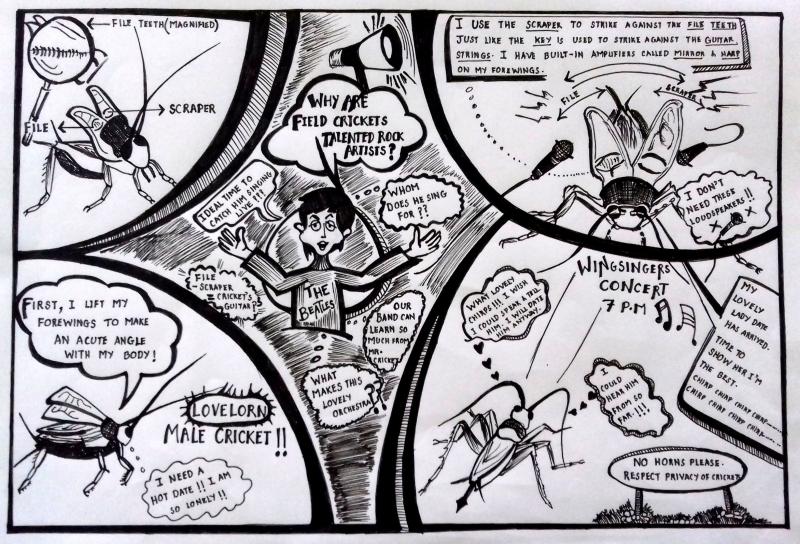 FILE TEETH (MAGNIFIED)
SCRAPER
FILE
WHY ARE
FIELD CRICKETS
TALENTED ROCK
ARTISTS?
IDEAL TIME TO
CATCH HIM SINGING
LIVE !!!
WHOM
DOES HE SING
FOR ??
FILE
- SCRAPER
= CRICKET'S
GUITAR?
THE
BEATLES
OUR
BAND CAN
LEARN SO
MUCH FROM
MR.
CRICKET
WHAT
MAKES THIS
LOVELY
ORCHESTRA?
I USE THE SCRAPER TO STRIKE AGAINST THE FILE TEETH
JUST LIKE THE KEY IS USED TO STRIKE AGAINST THE GUITAR
STRINGS. I HAVE BUILT-IN AMPLIFIERS CALLED MIRROR & HARP
ON MY FOREWINGS.
FILE
SCRAPER
I DON'T
NEED THESE
LOUDSPEAKERS !!
FIRST, I LIFT MY
FOREWINGS TO MAKE
AN ACUTE ANGLE
WITH MY BODY!
LOVELORN
MALE CRICKET !!
I NEED A
HOT DATE !! I AM
SO LONELY !!
WINGSINGERS
CONCERT
7 P.M
WHAT LOVELY
CHIRPS!!! I WISH
I COULD SPEAK & TELL
HIM. I WILL DATE
HIM ANYWAY.
I
COULD
HEAR HIM
FROM SO
FAR.!!!
MY
LOVELY
LADY DATE
HAS ARRIVED.
TIME TO
SHOW HER I'M
THE BEST.
CHIRP CHIRP CHIRP
CHIRP CHIRP CHIRP
NO HORNS PLEASE.
RESPECT PRIVACY OF CRICKETS